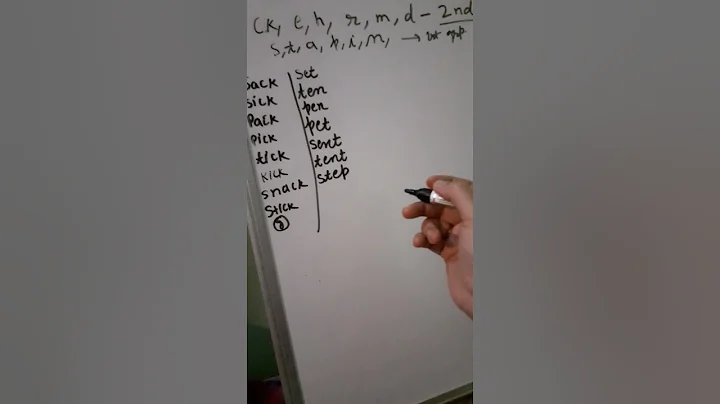 CK, e, h, r, m, d - 2nd
s, t, a, p, i, n, → 1st
sack
sick
pack
pick
tick
kick
snack
stick
8
set
ten
pen
pet
sent
tent
step